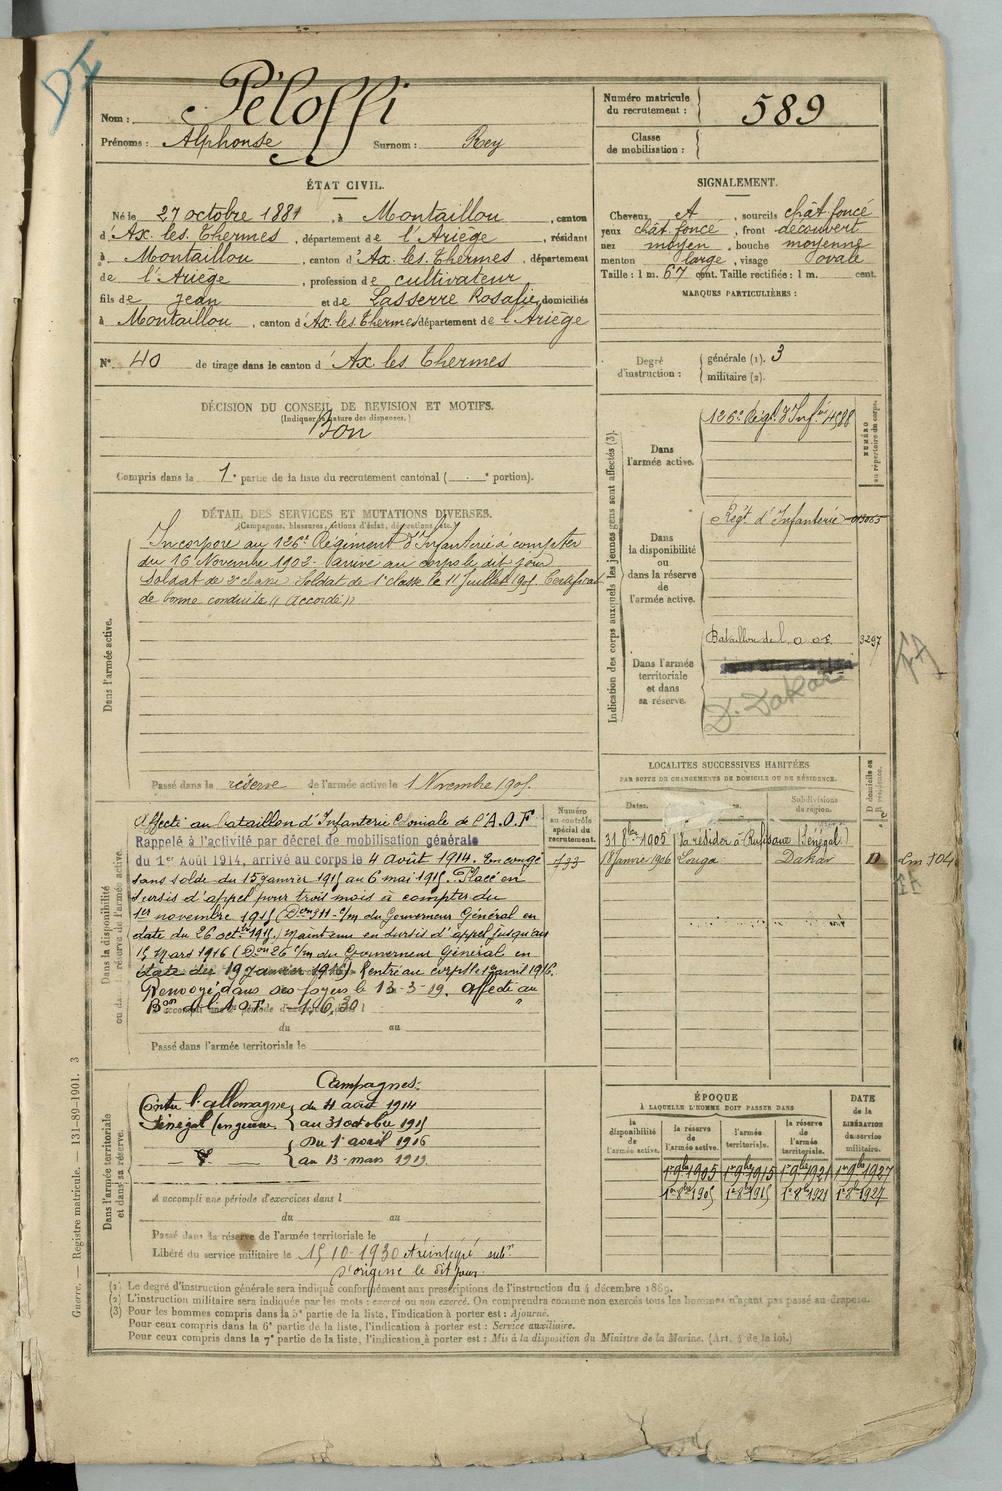 DI
Nom : Péloffi
Prénoms : Alphonse Surnom : Rey
Numéro matricule du recrutement : 589
Classe de mobilisation :
ÉTAT CIVIL.
Né le 27 octobre 1881, à Montaillou, canton
d'Ax. les. Thermes, département de l'Ariège, résidant
à Montaillou, canton d'Ax. les. Thermes, département
de l'Ariège, profession de cultivateur
fils de Jean et de Lasserre Rosalie, domiciliés
à Montaillou, canton d'Ax. les Thermes département de l'Ariège
N° 40 de tirage dans le canton d'Ax les Thermes
SIGNALEMENT.
Cheveux A, sourcils chât foncé
yeux chât. foncé, front découvert
nez moyen, bouche moyenne
menton large, visage ovale
Taille : 1 m. 67 cent. Taille rectifiée : 1 m. cent.
MARQUES PARTICULIÈRES :
Degré d'instruction : générale (1). 3
militaire (2).
DÉCISION DU CONSEIL DE REVISION ET MOTIFS.
(Indiquer la nature des dispenses.)
Bon
Compris dans la 1e partie de la liste du recrutement cantonal ( e portion).
DÉTAIL DES SERVICES ET MUTATIONS DIVERSES.
(Campagnes, blessures, actions d'éclat, décorations, etc.)
Dans l'armée active.
Incorporé au 126e Régiment d'Infanterie à compter
du 16 Novembre 1902. Arrivé au corps le dit jour
Soldat de 2e classe Soldat de 1e classe le 11 Juillet 1905. Certificat
de bonne conduite "Accordé"
Passé dans la réserve de l'armée active le 1 Novembre 1905.
Indication des corps auxquels les jeunes gens sont affectés (3).
NUMÉRO au répertoire du corps.
Dans l'armée active.
126e Régt d'Infrie 4588
Dans la disponibilité ou dans la réserve de l'armée active.
Régt d'Infanterie
Dans l'armée territoriale et dans sa réserve.
Bataillon de l'A O F. 3297
D. Dakar
LOCALITÉS SUCCESSIVES HABITÉES
PAR SUITE DE CHANGEMENTS DE DOMICILE OU DE RÉSIDENCE.
Dates.
Subdivisions de région.
D domicile ou R résidence.
31 8bre 1905 Va résider à Rufisque (Sénégal)
18 Janvier 1906 Louga Dakar D
Dans la disponibilité ou dans la réserve de l'armée active.
Numéro au contrôle spécial du recrutement.
733
Affecté au bataillon d'Infanterie Coloniale de l'A.O.F
Rappelé à l'activité par décret de mobilisation générale
du 1er Août 1914, arrivé au corps le 4 août 1914. En congé
sans solde du 15 janvier 1915 au 6 mai 1915. Placé en
sursis d'appel pour trois mois à compter du
1er novembre 1915 (Don 311 c/m du Gouverneur Général en
date du 26 octbre 1915) Maintenu en sursis d'appel jusqu'au
15 Mars 1916 (Don 26 c/m du Gouverneur Général en
date du 19 Janvier 1916) Rentré au corps le 1er avril 1916.
Renvoyé dans ses foyers le 13-3-19. Affecté au
Bon de l'A.O.F. 1.6.30
A accompli une période d'exercices dans l
du au
Passé dans l'armée territoriale le
Dans l'armée territoriale et dans sa réserve.
Campagnes:
Contre l'allemagne du 4 août 1914
Sénégal (en guerre) au 31 octobre 1915
du 1er avril 1916
au 13 mars 1919.
A accompli une période d'exercices dans l
du au
Passé dans la réserve de l'armée territoriale le
Libéré du service militaire le 15 10-1930 et réintégré subon
d'origine le dit jour.
ÉPOQUE
À LAQUELLE L'HOMME DOIT PASSER DANS
la disponibilité de l'armée active.
la réserve de l'armée active.
l'armée territoriale.
la réserve de l'armée territoriale.
DATE de la LIBÉRATION du service militaire.
1er 9bre 1905 1er 9bre 1915 1er 9bre 1921 1er 9bre 1927
1er 8bre 1905 1er 8bre 1915 1er 8bre 1921 1er 8bre 1927
(1) Le degré d'instruction générale sera indiqué conformément aux prescriptions de l'instruction du 4 décembre 1889.
(2) L'instruction militaire sera indiquée par les mots : exercé ou non exercé. On comprendra comme non exercés tous les hommes n'ayant pas passé au drapeau.
(3) Pour les hommes compris dans la 5e partie de la liste, l'indication à porter est : Ajourné.
Pour ceux compris dans la 6e partie de la liste, l'indication à porter est : Service auxiliaire.
Pour ceux compris dans la 7e partie de la liste, l'indication à porter est : Mis à la disposition du Ministre de la Marine. (Art. 4 de la loi.)
Guerre. — Registre matricule. — 131-89-1901. 3